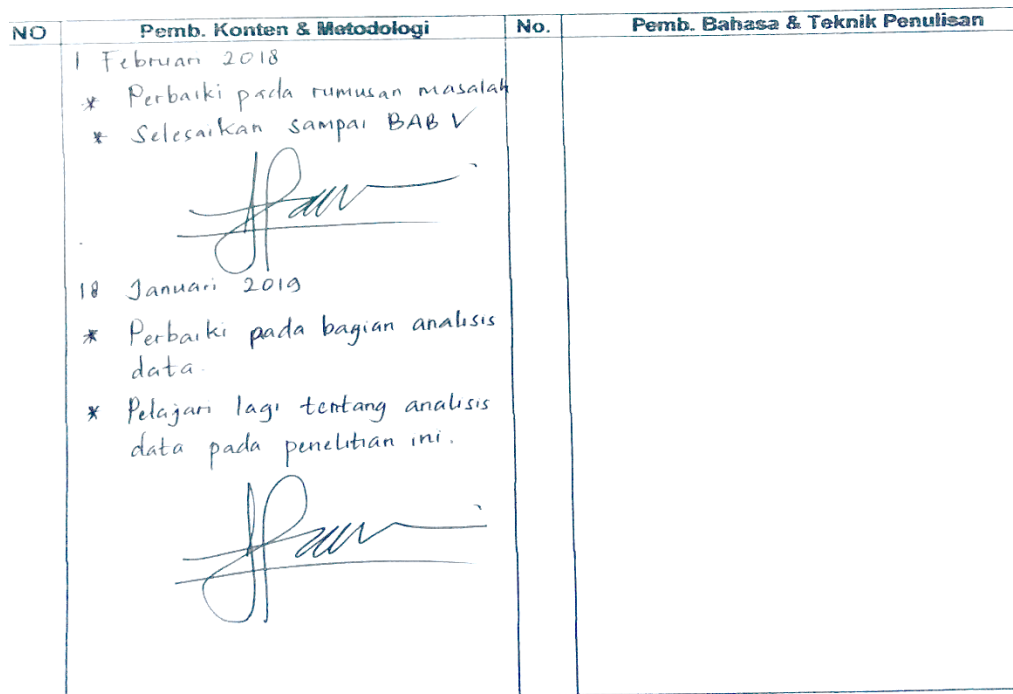 NO Pemb. Konten & Metodologi No. Pemb. Bahasa & Teknik Penulisan
1 Februari 2018
* Perbaiki pada rumusan masalah
* Selesaikan sampai BAB V
18 Januari 2019
* Perbaiki pada bagian analisis
data.
* Pelajari lagi tentang analisis
data pada penelitian ini.